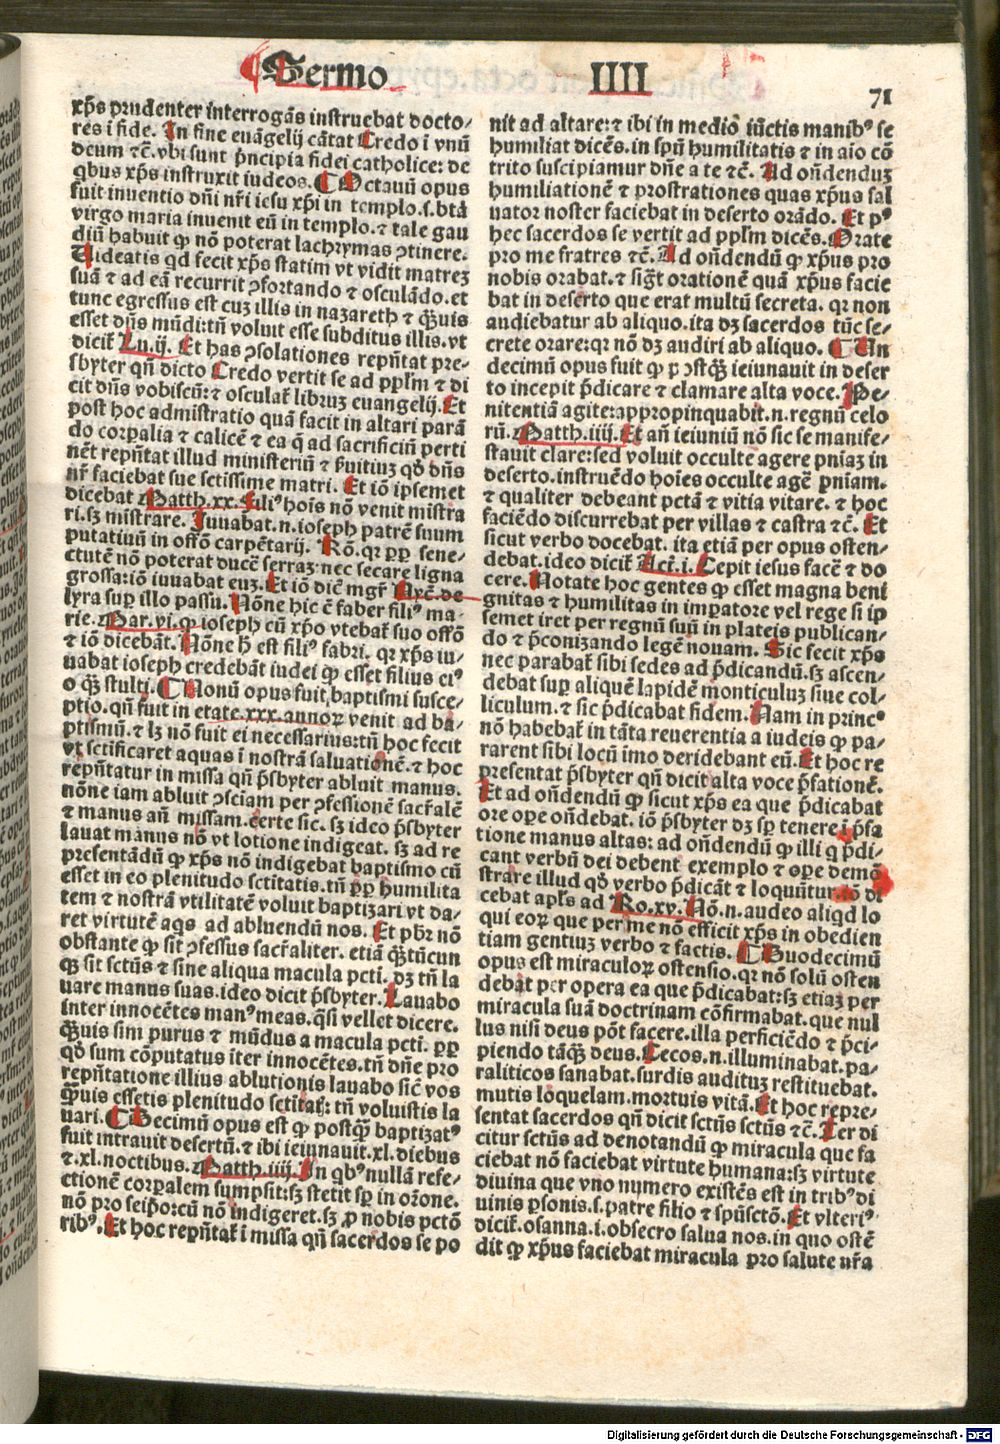 Sermo IIII
71
xp̄s prudenter interrogās instruebat docto⸗
res ī fide. In fine euāgelij cātat Credo ī vnū
deum ⁊c̄. vbi sunt p̄ncipia fidei catholice: de
qbus xp̄s instruxit iudeos. ¶ Octauū opus
fuit inuentio dn̄i nr̄i iesu xp̄i in templo.s.btā
virgo maria inuenit eū in templo.⁊ tale gau
diū habuit ꝙ nō poterat lachrymas ꝯtinere.
Uideatis qd fecit xp̄s statim vt vidit matreꝫ
suā ⁊ ad eā recurrit ꝯfortando ⁊ osculādo.et
tunc egressus est cuꝫ illis in nazareth ⁊ ꝙ̄uis
esset dn̄s mūdi:tn̄ voluit esse subditus illis.vt
dicit̄ Lu.ij. Et has ꝯsolationes repn̄tat pre⸗
sbyter qn̄ dicto Credo vertit se ad pplm ⁊ di
cit dn̄s vobiscū:⁊ osculat̄ libruꝫ euangelij. Et
post hoc admistratio quā facit in altari parā
do corpalia ⁊ calicē ⁊ ea q̄ ad sacrificiū perti
nēt repn̄tat illud ministeriū ⁊ ẜuitiuꝫ qd̄ dn̄s
nr̄ faciebat sue sctissime matri. Et iō ipsemet
dicebat Matth.xx. Filiꝰ hoīs nō venit mīstra
ri.sꝫ mīstrare. Iuuabat.n.ioseph patrē suum
putatiuū in offō carpētarij. Rō.qꝛ ꝓp sene⸗
ctutē nō poterat ducē serraꝫ:nec secare ligna
grossa:iō iuuabat euꝫ. Et iō dic̄ mgr̄ Nyc̄.de
lyra sup illo passu. Nōne hic ē faber filiꝰ ma⸗
rie. Mar.vi.ꝙ ioseph cū xp̄o vtebat̄ suo offō
⁊ iō dicebāt. Nōne h̄ est filiꝰ fabri. qꝛ xp̄s iu⸗
uabat ioseph credebāt iudei ꝙ esset filius eiꝰ
o ꝙ̄ stulti. ¶ Nonū opus fuit baptismi susce⸗
ptio.qn̄ fuit in etate.xxx.annoꝝ venit ad ba⸗
ptismū.⁊ lꝫ nō fuit ei necessarius:tn̄ hoc fecit
vt sctificaret aquas ī nostrā saluationē.⁊ hoc
repn̄tatur in missa qn̄ p̄sbyter abluit manus.
nōne iam abluit ꝯsciam per ꝯfessionē sacr̄alē
⁊ manus an̄ missam.certe sic. sꝫ ideo p̄sbyter
lauat manus nō vt lotione indigeat. sꝫ ad re
presentādū ꝙ xp̄s nō indigebat baptismo cū
esset in eo plenitudo sctitatis.tn̄ ꝓp humilita
tem ⁊ nostrā vtilitatē voluit baptizari vt da⸗
ret virtutē aqs ad abluendū nos. Et pbr̄ nō
obstante ꝙ sit ꝯfessus sacr̄aliter. etiā ꝙ̄tūcun
ꝙ̄ sit sctūs ⁊ sine aliqua macula pcti. dꝫ tn̄ la
uare manus suas.ideo dicit p̄sbyter. Lauabo
inter innocētes manꝰ meas.qsi vellet dicere.
ꝙ̄uis sim purus ⁊ mūdus a macula pcti. ꝓp
qd̄ sum cōputatus iter innocētes.tn̄ dn̄e pro
repn̄tatione illius ablutionis lauabo sic̄ vos
ꝙ̄uis essetis plenitudo sctitat̄: tn̄ voluistis la
uari. ¶ Decimū opus est ꝙ postꝙ̄ baptizatꝰ
fuit intrauit desertū.⁊ ibi ieiunauit.xl.diebus
⁊.xl.noctibus. Matth.iiij. In qbꝰ nullā refe⸗
ctionē corpalem sumpsit:sꝫ stetit sp in orōne.
nō pro seipo:cū nō indigeret.sꝫ ꝓ nobis pctō
ribꝰ. Et hoc repn̄tat̄ ī missa qn̄ sacerdos se po
nit ad altare:⁊ ibi in medio iūctis manibꝰ se
humiliat dicēs. in spū humilitatis ⁊ in aīo cō
trito suscipiamur dn̄e a te ⁊c̄. Ad on̄dendū
humiliationē ⁊ prostrationes quas xp̄us sal
uator noster faciebat in deserto orādo. Et pꝰ
hec sacerdos se vertit ad pplm dicēs. Orate
pro me fratres ⁊c̄. Ad on̄dendū ꝙ xp̄us pro
nobis orabat.⁊ sigt̄ orationē quā xp̄us facie
bat in deserto que erat multū secreta. qꝛ non
audiebatur ab aliquo.ita dꝫ sacerdos tūc se⸗
crete orare:qꝛ nō dꝫ audiri ab aliquo. ¶ Un
decimū opus fuit ꝙ p ꝯstꝙ̄ ieiunauit in deser
to incepit p̄dicare ⁊ clamare alta voce. Pe⸗
nitentiā agite:appropinquabit.n.regnū celo
rū. Matth.iiij. Et an̄ ieiuniū nō sic se manife⸗
stauit clare:sed voluit occulte agere pniaꝫ in
deserto.instruēdo hoīes occulte agē pniam.
⁊ qualiter debeant pctā ⁊ vitia vitare. ⁊ hoc
faciēdo discurrebat per villas ⁊ castra ⁊c̄. Et
sicut verbo docebat. ita etiā per opus osten⸗
debat.ideo dicit̄ Act̄.i. Cepit iesus facē ⁊ do
cere. Notate hoc gentes ꝙ esset magna beni
gnitas ⁊ humilitas in impatore vel rege si ip
semet iret per regnū suū in plateis publican⸗
do ⁊ p̄conizando legē nouam. Sic fecit xp̄s
nec parabat̄ sibi sedes ad p̄dicandū.sꝫ ascen⸗
debat sup aliquē lapidē monticuluꝫ siue col⸗
liculum.⁊ sic p̄dicabat fidem. Nam in princꝰ
nō habebat̄ in tāta reuerentia a iudeis ꝙ pa⸗
rarent sibi locū īmo deridebant eū. Et hoc re
presentat p̄sbyter qn̄ dicit alta voce p̄fationē.
Et ad on̄dendū ꝙ sicut xp̄s ea que p̄dicabat
ore ope on̄debat. iō p̄sbyter dꝫ sp tenere ī p̄fa
tione manus altas: ad on̄dendū ꝙ illi q p̄di⸗
cant verbū dei debent exemplo ⁊ ope demō
strare illud qd̄ verbo p̄dicāt ⁊ loquūtur.iō di
cebat apl̄s ad Ro.xv. Nō.n.audeo aliqd lo
qui eoꝝ que per me nō efficit xp̄s in obedien
tiam gentiuꝫ verbo ⁊ factis. ¶ Duodecimū
opus est miraculoꝝ ostensio.qꝛ nō solū osten
debat per opera ea que p̄dicabat:sꝫ etiaꝫ per
miracula suā doctrinam cōfirmabat.que nul
lus nisi deus pōt facere.illa perficiēdo ⁊ p̄ci⸗
piendo tāꝙ̄ deus. Cecos.n.illuminabat.pa⸗
raliticos sanabat.surdis audituꝫ restituebat.
mutis loquelam.mortuis vitā. Et hoc repre⸗
sentat sacerdos qn̄ dicit sctūs sctūs ⁊c̄. Ter di
citur sctūs ad denotandū ꝙ miracula que fa
ciebat nō faciebat virtute humana:sꝫ virtute
diuina que vno numero existēs est in tribꝰ di
uinis psonis.s.patre filio ⁊ spūsctō. Et vlteriꝰ
dicit̄.osanna.i.obsecro salua nos.in quo ostē
dit ꝙ xp̄us faciebat miracula pro salute vr̄a
Digitalisierung gefördert durch die Deutsche Forschungsgemeinschaft - DFG